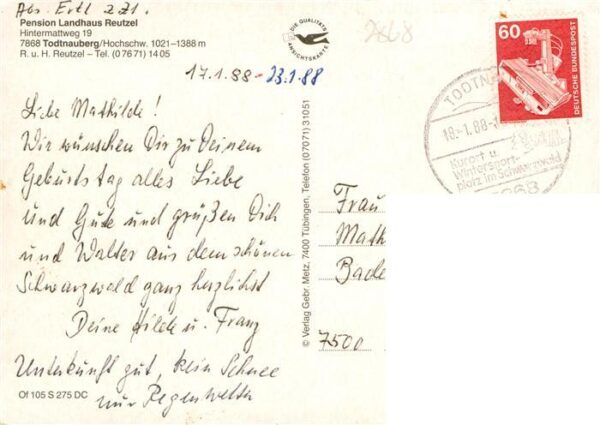 Abs. Ertl z.Zt.
Pension Landhaus Reutzel
Hintermattweg 19
7868 Todtnauberg/Hochschw. 1021–1388 m
R. u. H. Reutzel – Tel. (0 76 71) 14 05
DIE QUALITÄTS
ANSICHTSKARTE
7868
60
DEUTSCHE BUNDESPOST
17.1.88 - 23.1.88
TODTN
18.-1.88-1
Kurort u.
Wintersport-
platz im Schwarzwald
7868
Liebe Mathilde!
Wir wünschen Dir zu Deinem
Geburtstag alles Liebe
und Gute und grüßen Dich
und Walter aus dem schönen
Schwarzwald ganz herzlichst
Deine Hilde u. Franz
Unterkunft gut, kein Schnee
nur Regenwetter
Of 105 S 275 DC
© Verlag Gebr. Metz, 7400 Tübingen, Telefon (0 70 71) 3 10 51
Frau
Math
Bade
7500